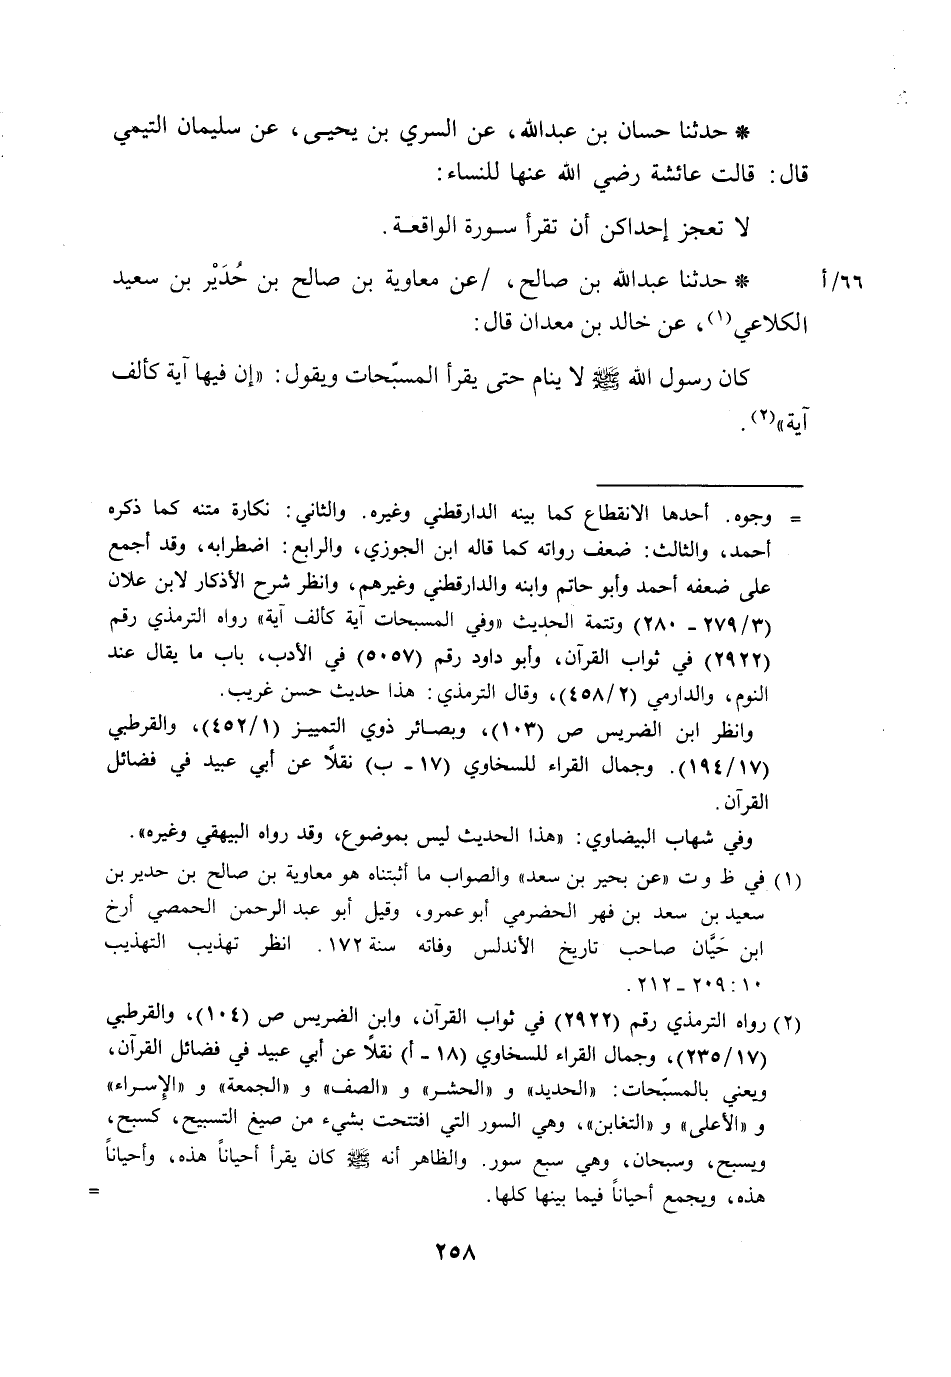 * حدثنا حسان بن عبدالله، عن السري بن يحيـى، عن سليمان التيمي
قال: قالت عائشة رضي الله عنها للنساء:
لا تعجز إحداكن أن تقرأ سـورة الواقعـة.
٦٦/أ * حدثنا عبدالله بن صالح، /عن معاوية بن صالح بن حُدَيْر بن سعيد
الكلاعي(١)، عن خالد بن معدان قال:
كان رسول الله ﷺ لا ينام حتى يقرأ المسبّحات ويقول: «إن فيها آية كألف
آية»(٢).
= وجوه. أحدها الانقطاع كما بينه الدارقطني وغيره. والثاني: نكارة متنه كما ذكره
أحمد، والثالث: ضعف رواته كما قاله ابن الجوزي، والرابع: اضطرابه، وقد أجمع
على ضعفه أحمد وأبو حاتم وابنه والدارقطني وغيرهم، وانظر شرح الأذكار لابن علان
(٢٧٩/٣ - ٢٨٠) وتتمة الحديث «وفي المسبحات آية كألف آية» رواه الترمذي رقم
(٢٩٢٢) في ثواب القرآن، وأبو داود رقم (٥٠٥٧) في الأدب، باب ما يقال عند
النوم، والدارمي (٤٥٨/٢)، وقال الترمذي: هذا حديث حسن غريب.
وانظر ابن الضريس ص (١٠٣)، وبصـائر ذوي التمييـز (٤٥٢/١)، والقرطبي
(١٩٤/١٧). وجمال القراء للسخاوي (١٧ - ب) نقلاً عن أبي عبيد في فضائل
القرآن.
وفي شهاب البيضاوي: «هذا الحديث ليس بموضوع، وقد رواه البيهقي وغيره».
(١) في ظ و ت «عن بحير بن سعد» والصواب ما أثبتناه هو معاوية بن صالح بن حدير بن
سعيد بن سعد بن فهر الحضرمي أبو عمرو، وقيل أبو عبد الرحمن الحمصي أرخ
ابن حَيَّان صاحب تاريخ الأندلس وفاته سنة ١٧٢. انظر تهذيب التهذيب
١٠: ٢٠٩ - ٢١٢.
(٢) رواه الترمذي رقم (٢٩٢٢) في ثواب القرآن، وابن الضريس ص (١٠٤)، والقرطبي
(٢٣٥/١٧)، وجمال القراء للسخاوي (١٨ - أ) نقلاً عن أبي عبيد في فضائل القرآن،
ويعني بالمسبّحات: «الحديد» و «الحشر» و «الصف» و «الجمعة» و «الإسراء»
و «الأعلى» و «التغابن»، وهي السور التي افتتحت بشيء من صيغ التسبيح، كسبح،
ويسبح، وسبحان، وهي سبع سور. والظاهر أنه ﷺ كان يقرأ أحياناً هذه، وأحياناً
هذه، ويجمع أحياناً فيما بينها كلها. =
٢٥٨